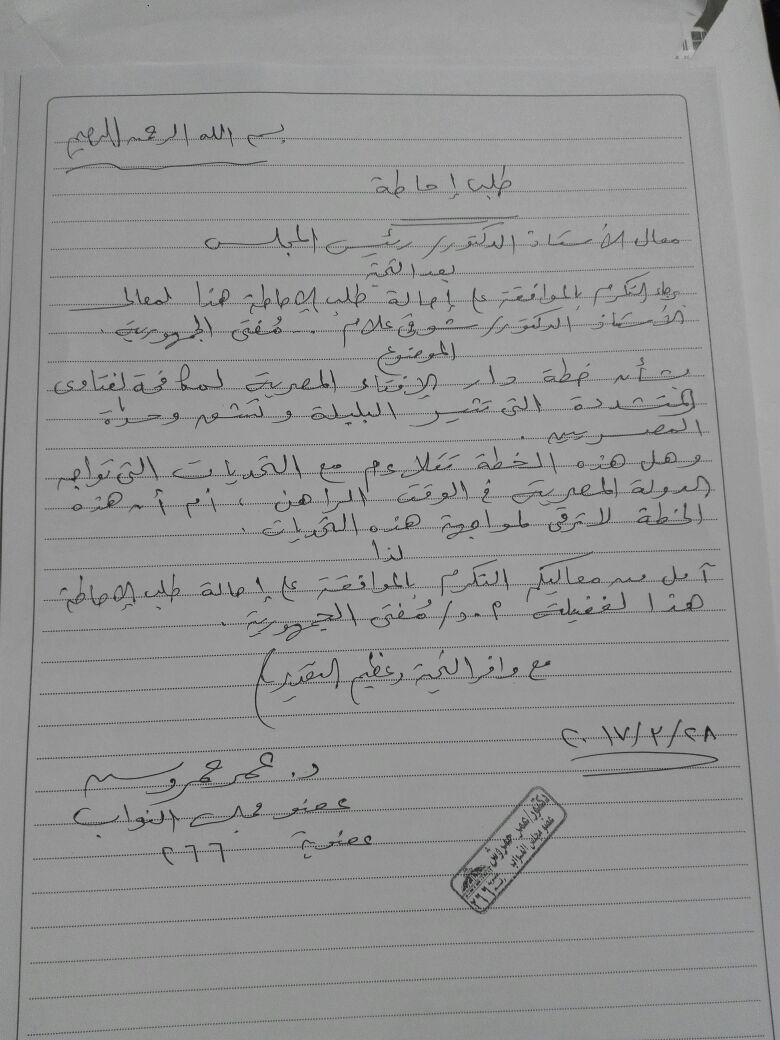 بسم الله الرحمن الرحيم
طلب إحاطة
معالى الأستاذ الدكتور/ رئيس المجلس
بعد التحية
برجاء التكرم بالموافقة على إحالة طلب الإحاطة هذا لمعالى
الأستاذ الدكتور/ شوقى علام . مُفتى الجمهورية .
الموضوع
بشأن خطة دار الإفتاء المصرية لمكافحة الفتاوى
المتشددة التى تثير البلبلة وتشق وحدة
المصريين .
وهل هذه الخطة تتلاءم مع التحديات التى تواجه
الدولة المصرية فى الوقت الراهن ، أم أن هذه
الخطة لا ترقى لمواجهة هذه التحديات .
لذا
آمل من معاليكم التكرم بالموافقة على إحالة طلب الإحاطة
هذا لفضيلة أ.د/ مُفتى الجمهورية .
مع وافر التحية وعظيم التقدير
٢٠١٧/٢/٢٨
د. عمر حمروش
عضو مجلس النواب
عضوية ٢٦٦
دكتور/ عمر حمروش
عضو مجلس النواب
٢٦٦